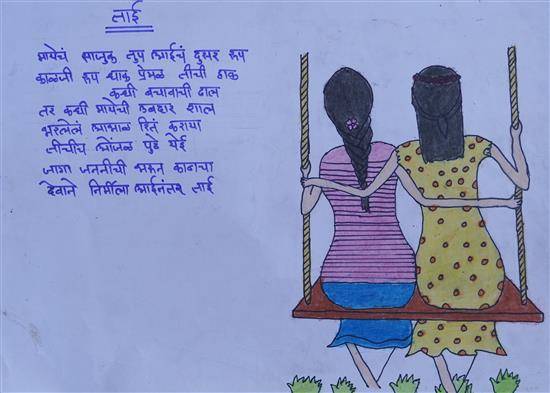 ताई
मायेचं साजुक तुप आईचं दुसर रूप
काळजी रूप धाक प्रेमळ तीची हाक
कधी बचावाची ढाल
तर कधी मायेची उबदार शाल
भरलेलं आभाळ रितं कराया
तीचीच ओंजळ पुढे येई
जागा जननीची भरून काढाया
देवाने निर्मीला आईनंतर ताई